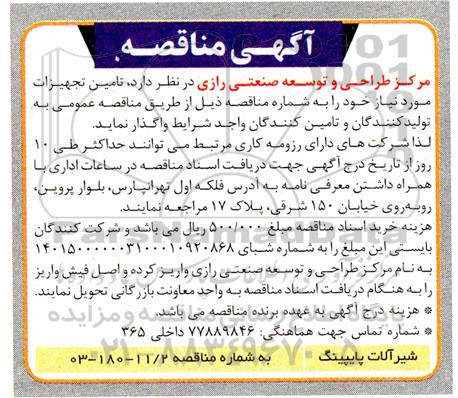 آگهی مناقصه
مرکز طراحی و توسعه صنعتی رازی در نظر دارد، تامین تجهیزات
مورد نیاز خود را به شماره مناقصه ذیل از طریق مناقصه عمومی به
تولیدکنندگان و تامین کنندگان واجد شرایط واگذار نماید.
لذا شرکت های دارای رزومه کاری مرتبط می توانند حداکثر طی ۱۰
روز از تاریخ درج آگهی جهت دریافت اسناد مناقصه در ساعات اداری با
همراه داشتن معرفی نامه به آدرس فلکه اول تهرانپارس، بلوار پروین،
روبه‌روی خیابان ۱۵۰ شرقی، پلاک ۱۷ مراجعه نمایند.
هزینه خرید اسناد مناقصه مبلغ ۵۰۰/۰۰۰ ریال می باشد و شرکت کنندگان
بایستی این مبلغ را به شماره شبای
به نام مرکز طراحی و توسعه صنعتی رازی واریز کرده و اصل فیش واریز
را به هنگام دریافت اسناد مناقصه به واحد معاونت بازرگانی تحویل نمایند.
* هزینه درج آگهی به عهده برنده مناقصه می باشد.
* شماره تماس جهت هماهنگی: ۷۷۸۸۹۸۴۶ داخلی ۳۶۵
شیرآلات پایپینگ به شماره مناقصه ۱۱/۲-۱۸۰-۰۳